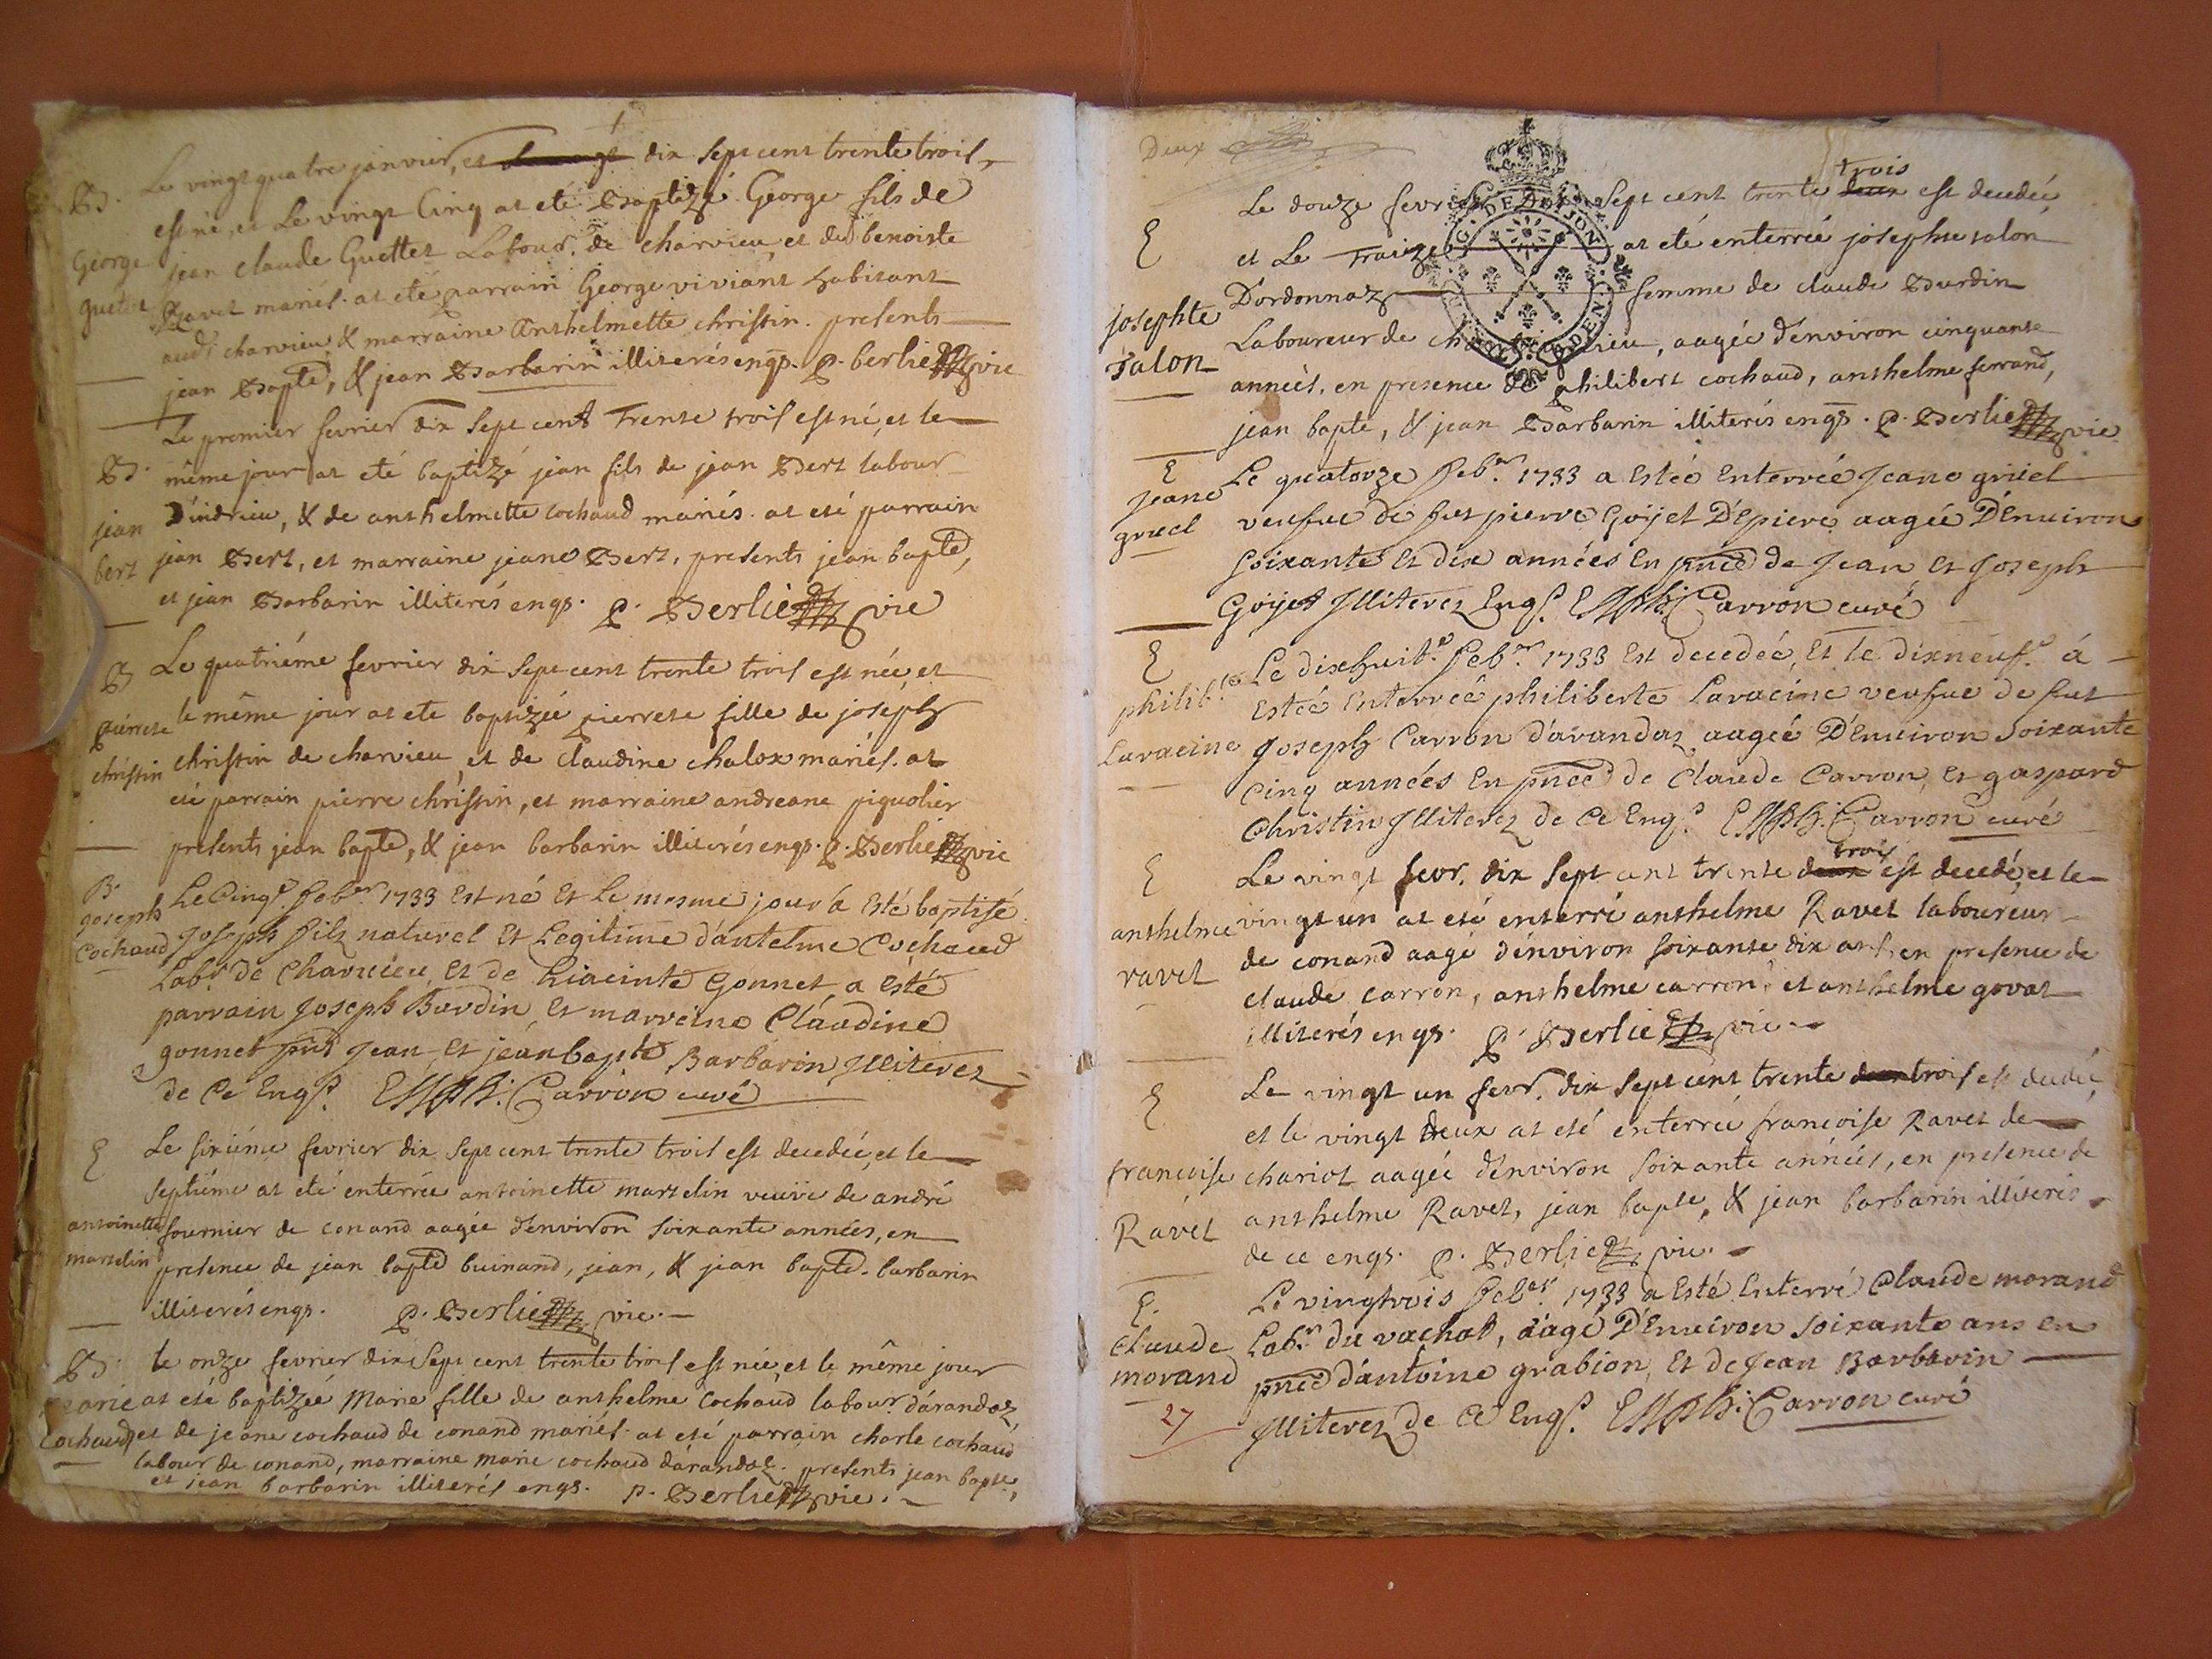 B.
Le vingt quatre janvier, et dix sept cent trente trois,
est né, et Le vingt Cinq at eté Baptizé George fils de
George
guettet
jean claude Guettet Labour. de charvieu, et de benoiste
Ravet mariés. at eté parrain George viviant habitant
aud. charvieu, & marraine Anthelmette christin. presents
jean Bapte, & jean Barbarin illiterés engs. p. berlie vic
B.
jean
bert
Le premier fevrier dix sept cent Trente trois est né, et le
même jour at eté baptizé jean fils de jean Bert labour
D'indrieu, & de anthelmette cochaud mariés. at eté parrain
jean Bert, et marraine jeane Bert, presents jean bapte,
et jean Barbarin illiterés engs. p. Berlie vic
B
pierrete
christin
Le quatriéme fevrier dix sept cent trente trois est née, et
le même jour at ete baptizée pierrete fille de joseph
christin de charvieu, et de claudine chalox mariés. at
eté parrain pierre christin, et marraine andreane piquolier
presents jean bapte, & jean barbarin illiterés engs. p. Berlie vic
B.
joseph
Cochaud
Le Cinq.e feb.er 1733 Est né Et le mesme jour a Esté baptisé
Joseph filz naturel Et Legitime d'antelme Cochaud
Lab.r de Charvieu, Et de hiacinte Gonnet, a Esté
parrain Joseph Burdin, Et marreine Claudine
gonnet pnts Jean, Et jean bapte Barbarin Illiterez
de Ce Engs. Carron curé
E
antoinette
martelin
Le sixiéme fevrier dix sept cent trente trois est decedée, et le
septiéme at eté enterrée antoinette martelin veuve de andré
fournier de conand aagée d'environ soixante années, en
presence de jean bapte buinand, jean, & jean bapte. barbarin
illiterés engs. p. Berlie vic.
B.
Marie
Cochaud
le onze fevrier dix sept cent trente trois est née, et le même jour
at eté baptizée Marie fille de anthelme Cochaud labour d'arandaz,
et de jeane cochaud de conand mariés. at eté parrain charle cochaud
labour de conand, marraine marie cochaud d'arandaz. presents jean bapte,
et jean barbarin illiterés engs. p. Berlie vic.
Deux
E
josephte
Talon
trois
Le douze fevrier Dix sept cent trente deux est decedée,
et Le Traize at eté enterrée josephte talon
D'ordonnaz femme de claude Burdin
Laboureur de charvieu, aagée d'environ cinquante
années, en presence de philibert cochaud, anthelme ferrand,
jean bapte, & jean Barbarin illiterés engs. p. Berlie vic
E
jeane
gruel
Le quatorze feb.er 1733 a Estée Enterrée Jeane gruel
veufue de fut pierre Goijet D'Epiere aagée D'Enuiron
soixante Et dix années En pnce de Jean Et Joseph
Goijet Illiterez Engs. Carron curé
E
philib.te
Laracine
Le dixhuit.e feb.er 1733 Est decedée, Et le dixneuf.e á
Estée Enterrée philiberte Laracine veufue de fut
Joseph Carron d'arandaz aagée D'Enuiron soixante
Cinq années En pnce de Claude Carron, Et gaspard
Christin Illiterez de Ce Engs. Carron curé
E
anthelme
ravet
trois
Le vingt fevr. dix sept cent trente deux est decedé, et le
vingt un at eté enterré anthelme Ravet laboureur
de conand aagé d'environ soixante dix ans, en presence de
claude carron, anthelme carron, et anthelme govat
illiterés engs. p. Berlie vic.
E
francoise
Ravet
Le vingt un fevr. dix sept cent trente deux trois est decedée,
et le vingt deux at eté enterrée francoise Ravet de
chariot aagée d'environ soixante années, en presence de
anthelme Ravet, jean bapte, & jean barbarin illiterés
de ce engs. p. Berlie vic.
E.
Claude
morand
Le vingtrois feb.er 1733 a Esté Enterré Claude morand
Lab.r du vachat, aagé D'Enuiron soixante ans en
pnce d'antoine grabion, Et de Jean Barbarin
Illiterez de Ce Engs. Carron curé
27